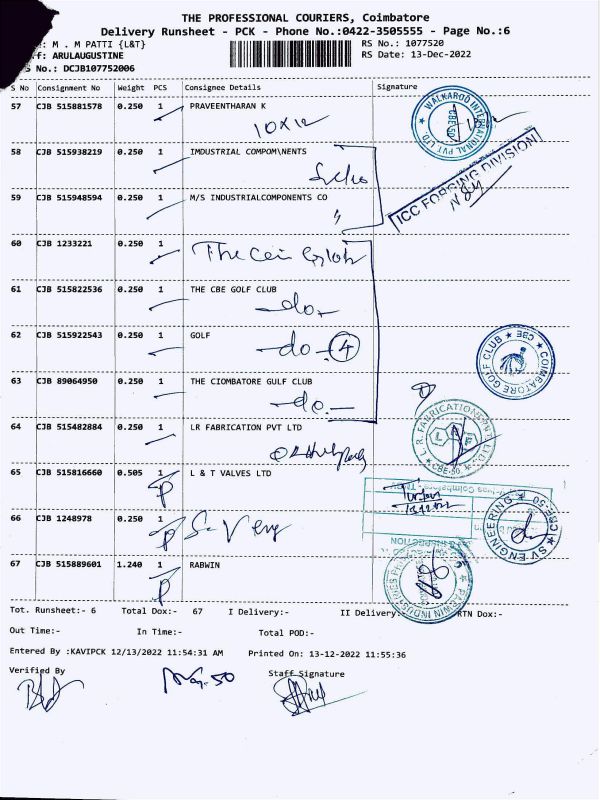 THE PROFESSIONAL COURIERS, Coimbatore
Delivery Runsheet - PCK - Phone No.:0422-3505555 - Page No.:6
: M . M PATTI {L&T}
RS No.: 1077520
f: ARULAUGUSTINE
RS Date: 13-Dec-2022
S No.: DCJB107752006
S No Consignment No Weight PCS Consignee Details Signature
57 CJB 515881578 0.250 1 PRAVEENTHARAN K
10x12
WALKAROO INTERNATIONAL PVT. LTD. CBE-50
58 CJB 515938219 0.250 1 IMDUSTRIAL COMPOM\NENTS
ICC FORGING DIVISION
59 CJB 515948594 0.250 1 M/S INDUSTRIALCOMPONENTS CO
"
60 CJB 1233221 0.250 1 The Cbi Golf
61 CJB 515822536 0.250 1 THE CBE GOLF CLUB
-do-
62 CJB 515922543 0.250 1 GOLF
-do- 4
COIMBATORE GOLF CLUB ★ CBE ★
63 CJB 89064950 0.250 1 THE CIOMBATORE GULF CLUB
-do-
64 CJB 515482884 0.250 1 LR FABRICATION PVT LTD
L.R. FABRICATION PVT LTD. CBE-50.
65 CJB 515816660 0.505 1 L & T VALVES LTD
P
66 CJB 1248978 0.250 1 S V Eng
P
SV ENGINEERING ★ CBE-50 ★
67 CJB 515889601 1.240 1 RABWIN
P
Tot. Runsheet:- 6 Total Dox:- 67 I Delivery:- II Delivery:- RTN Dox:-
Out Time:- In Time:- Total POD:-
Entered By :KAVIPCK 12/13/2022 11:54:31 AM Printed On: 13-12-2022 11:55:36
Verified By Staff Signature